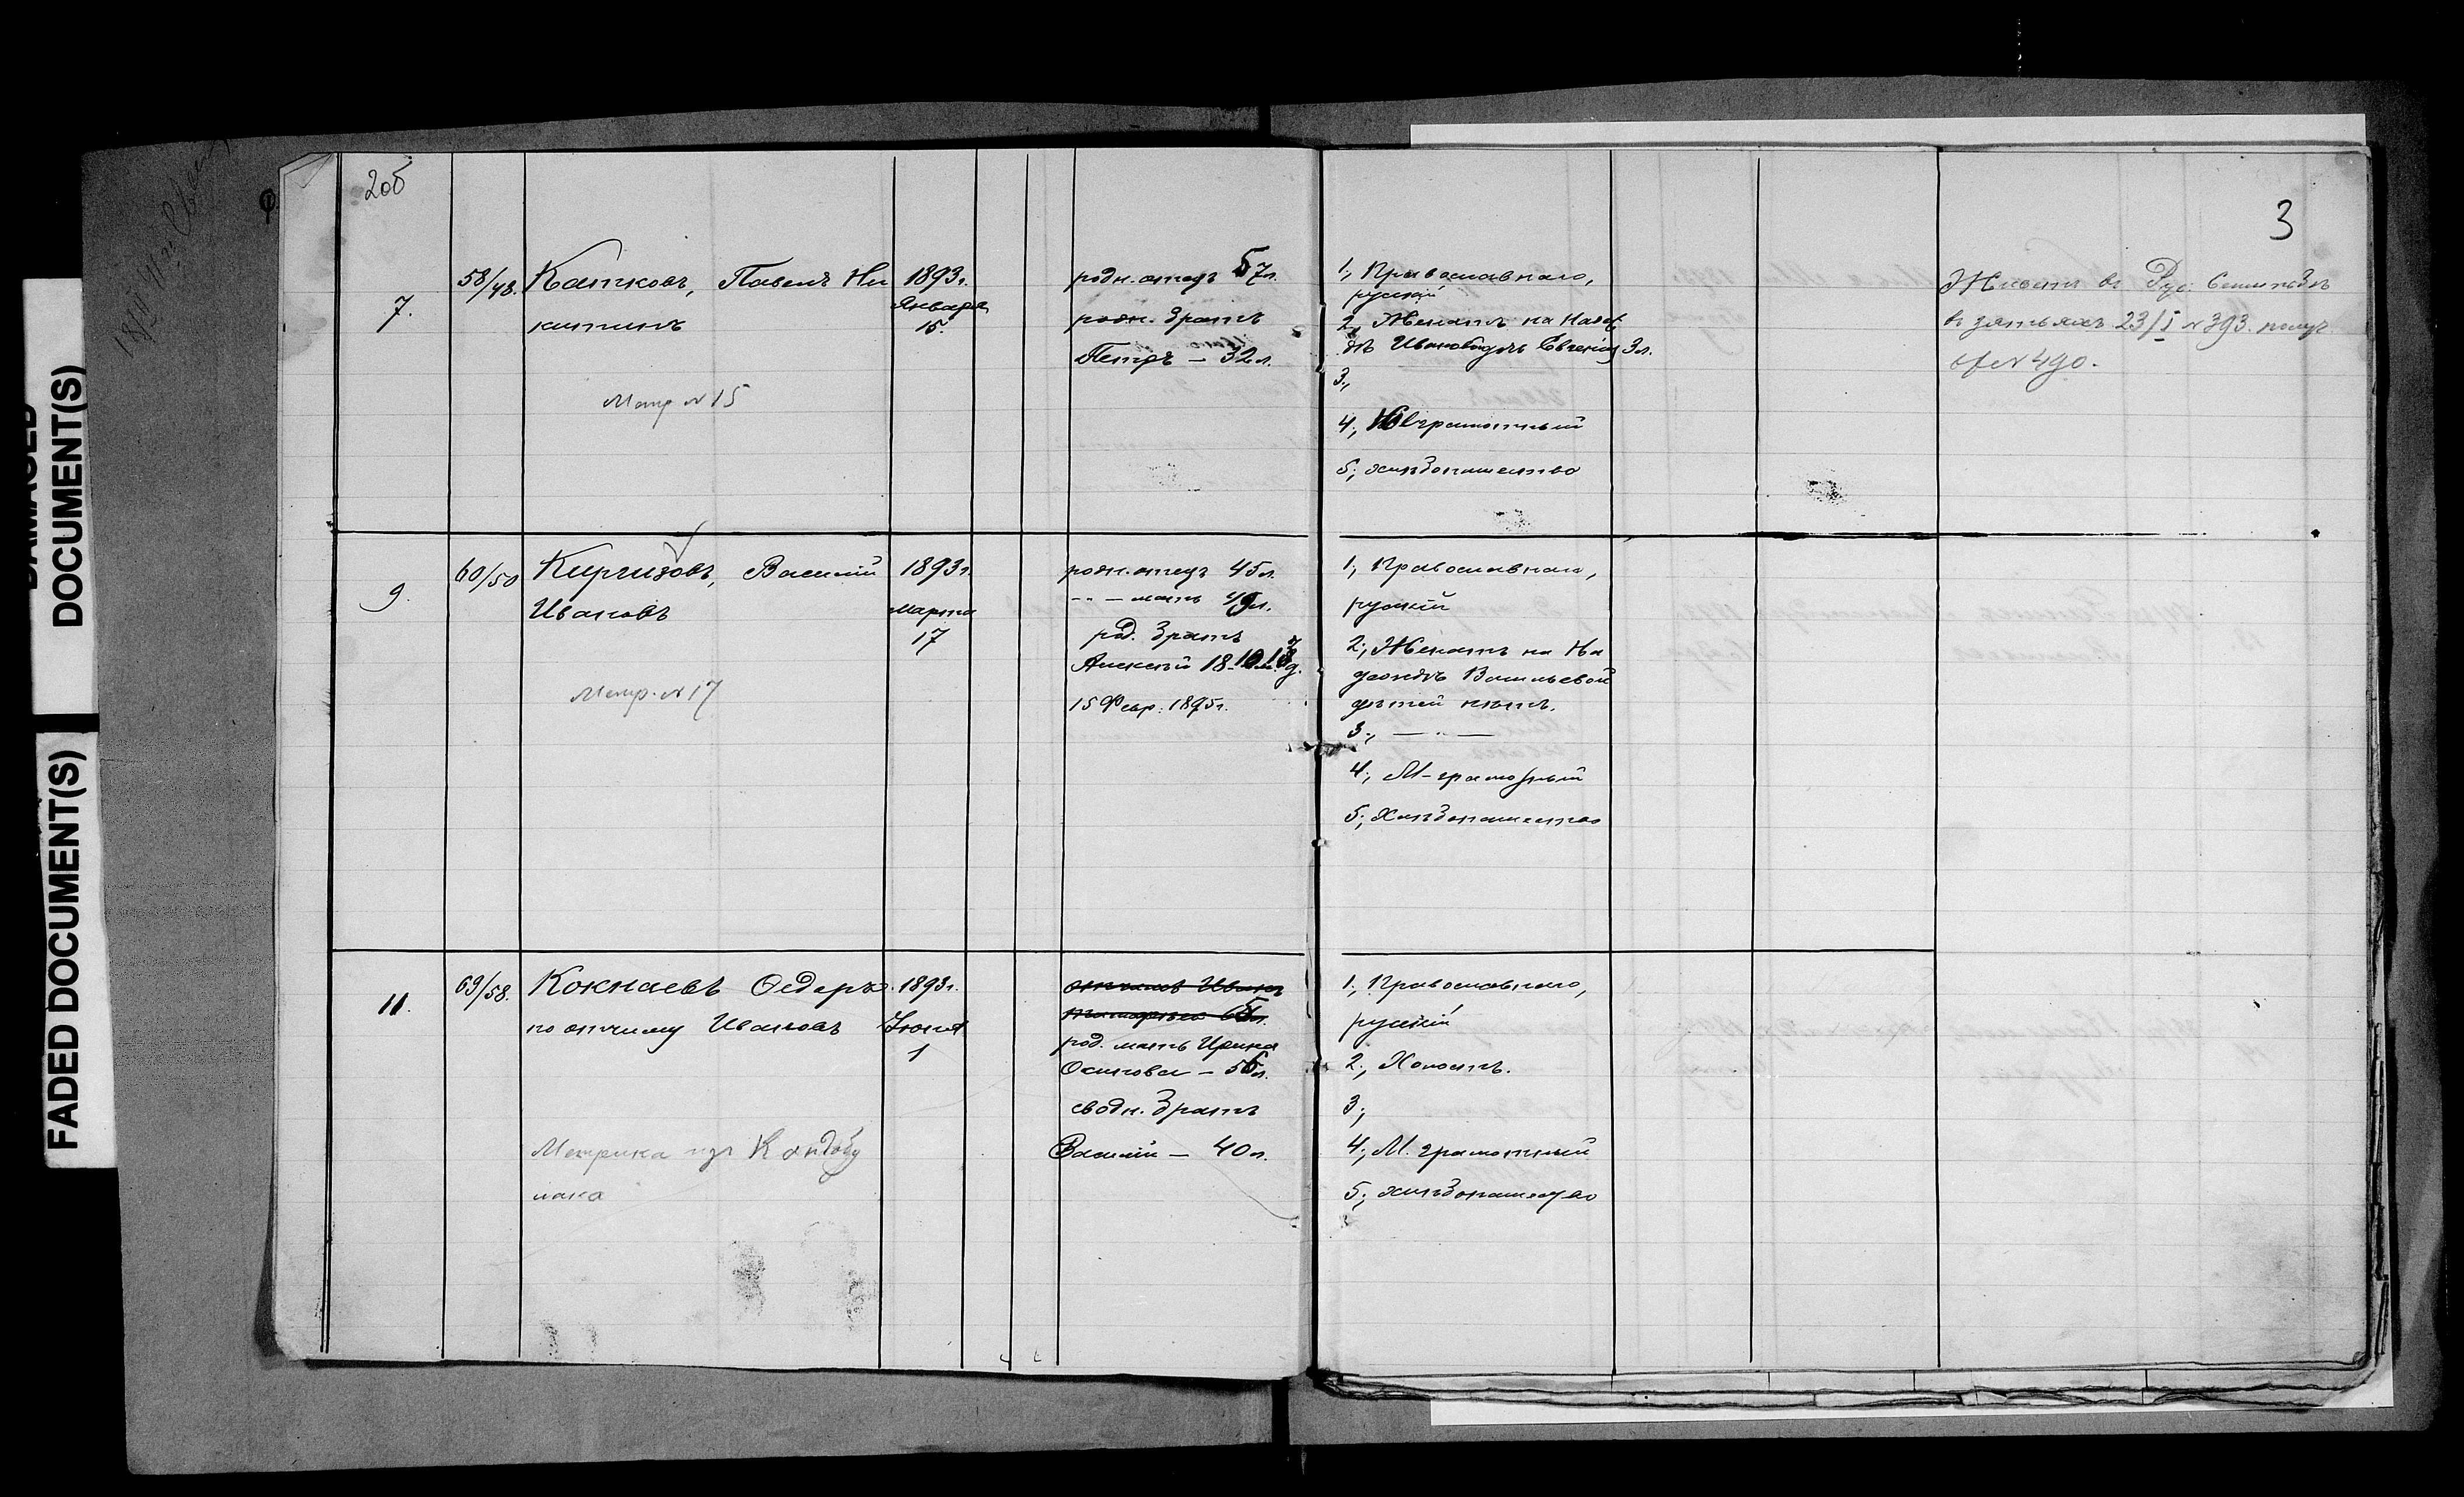 DAMAGED
DOCUMENT(S)
FADED DOCUMENT(S)
2об
3
7.
58/48.
Катковъ, Павелъ Ни
китинъ
Метр № 15
1893г.
Января
15.
родн. отецъ 57л.
родн. братъ
Петръ — 32л.
1, Православнаго,
русскій
2, Женатъ на
Ивановой дочь Евгенія 3л.
3,
4, Неграмотный
5, хлѣбопашество
Живетъ въ Рус.
въ зятьяхъ 23/I № 393.
№ 490.
9.
60/50
Киргизовъ, Василій
Ивановъ
Метр. № 17
1893г.
Марта
17
родн. отецъ 45л.
-„- мать 49л.
род. братъ
Алексѣй 18
15 Февр. 1895г.
1, Православнаго,
русскій
2, Женатъ на На
деждѣ Васильевой
дѣтей нѣтъ.
3, — „ —
4, М-грамотный
5, Хлѣбопашество
11.
69/58.
Кокнаевъ Ѳедоръ
по отчиму Ивановъ
Метрика изъ
1893г.
Іюня
1
отчимъ Иванъ
род. мать Ирина
Осиповна — 56л.
сводн. братъ
Василій — 40л.
1, Православнаго,
русскій
2, Холостъ.
3,
4, М. грамотный
5, хлѣбопашество